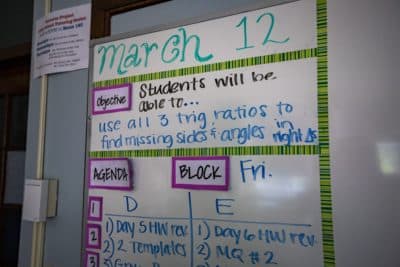 March 12
Objective Students will be
able to...
use all 3 trig ratios to
find missing sides & angles in right Δs
AGENDA BLOCK Fri.
D E
1 1) Day 5 HW rev. 1) Day 6 HW rev.
2 2) 2 Templates 2) MQ #2
3